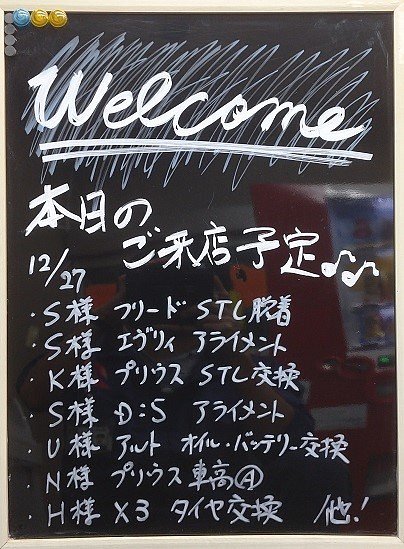 Welcome
本日の
ご来店予定♪♫
12/27
・S様 フリード STL脱着
・S様 エヴリィ アライメント
・K様 プリウス STL交換
・S様 D:5 アライメント
・U様 アルト オイル・バッテリー交換
・N様 プリウス 車高④
・H様 X3 タイヤ交換 他!